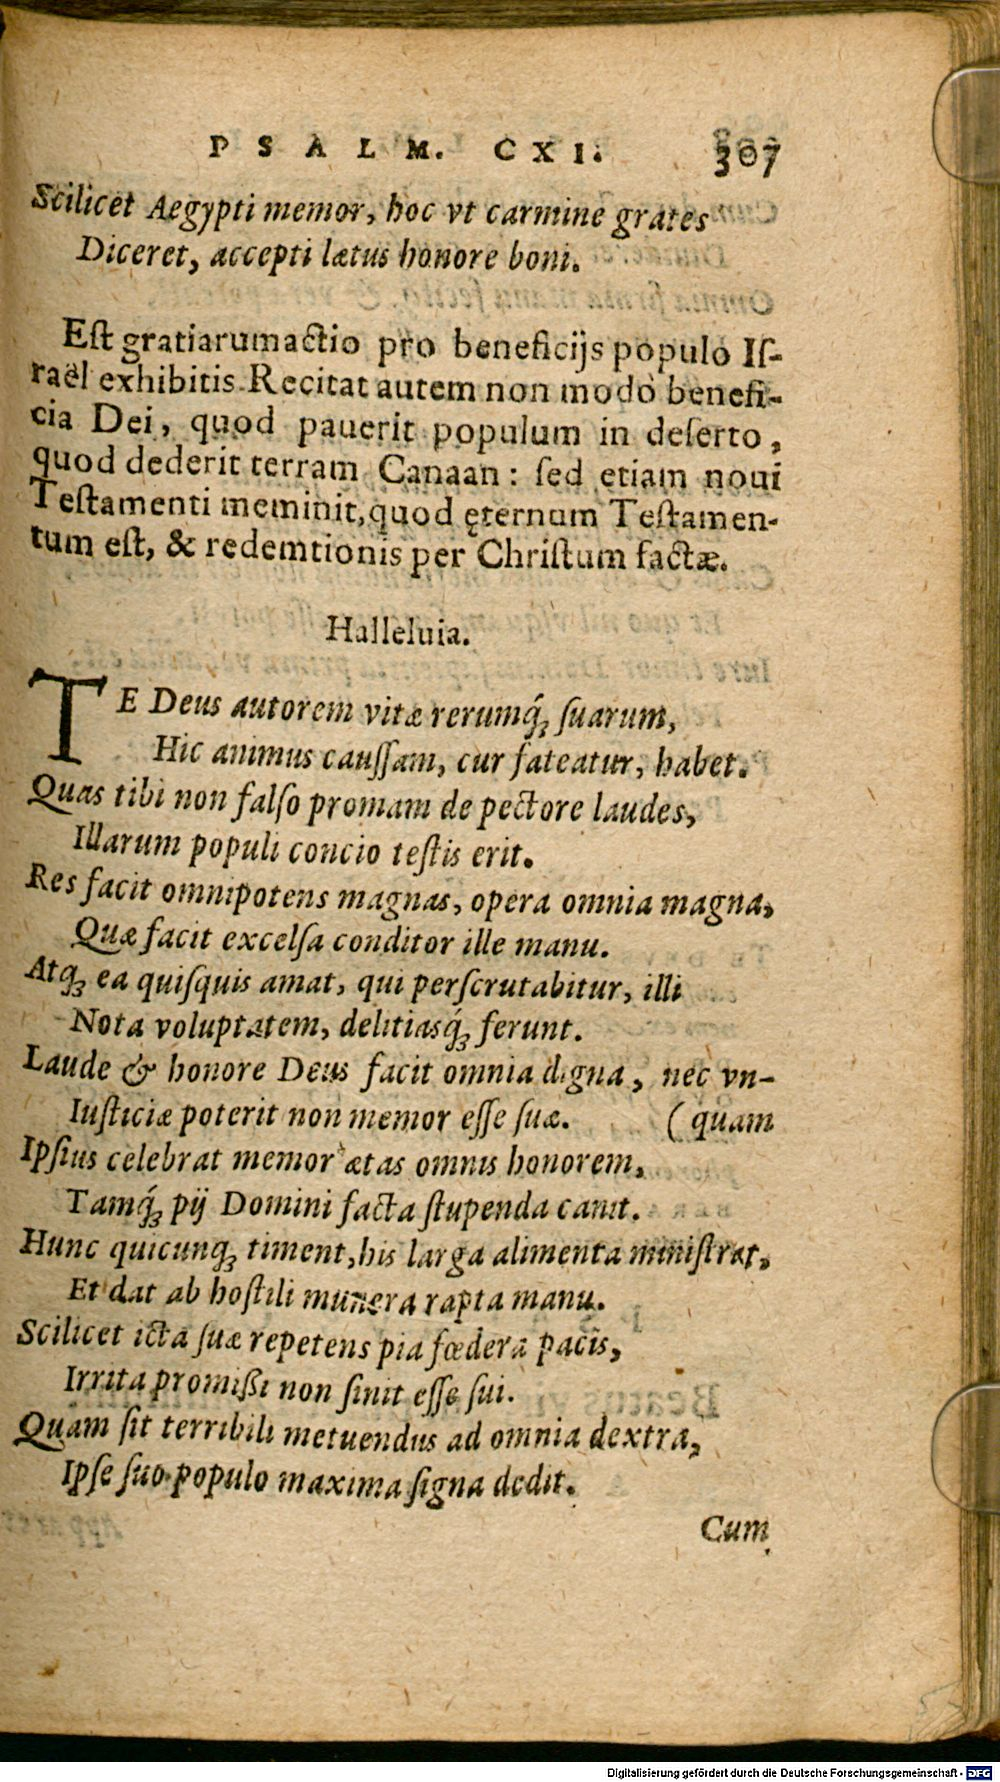 PSALM. CXI. 307
Scilicet Aegypti memor, hoc vt carmine grates
Diceret, accepti lætus honore boni.
Eſt gratiarumactio pro beneficijs populo Iſ-
raël exhibitis. Recitat autem non modò benefi-
cia Dei, quod pauerit populum in deſerto,
quod dederit terram Canaan: ſed etiam noui
Teſtamenti meminit, quod ęternum Teſtamen-
tum eſt, & redemtionis per Chriſtum factæ.
Halleluia.
TE Deus autorem vitæ rerumq́ꝫ ſuarum,
Hic animus cauſſam, cur fateatur, habet.
Quas tibi non falſo promam de pectore laudes,
Illarum populi concio teſtis erit.
Res facit omnipotens magnas, opera omnia magna,
Quæ facit excelſa conditor ille manu.
Atqꝫ ea quiſquis amat, qui perſcrutabitur, illi
Nota voluptatem, delitiasq́ꝫ ferunt.
Laude & honore Deus facit omnia digna, nec vn-
Iuſticiæ poterit non memor eſſe ſuæ. (quam
Ipſius celebrat memor ætas omnis honorem,
Tamq́ꝫ pij Domini facta ſtupenda canit.
Hunc quicunqꝫ timent, his larga alimenta miniſtrat,
Et dat ab hoſtili munera rapta manu.
Scilicet icta ſuæ repetens pia fœdera pacis,
Irrita promißi non ſinit eſſe ſui.
Quam ſit terribili metuendus ad omnia dextra,
Ipſe ſuo populo maxima ſigna dedit.
Cum
Digitalisierung gefördert durch die Deutsche Forschungsgemeinschaft - DFG